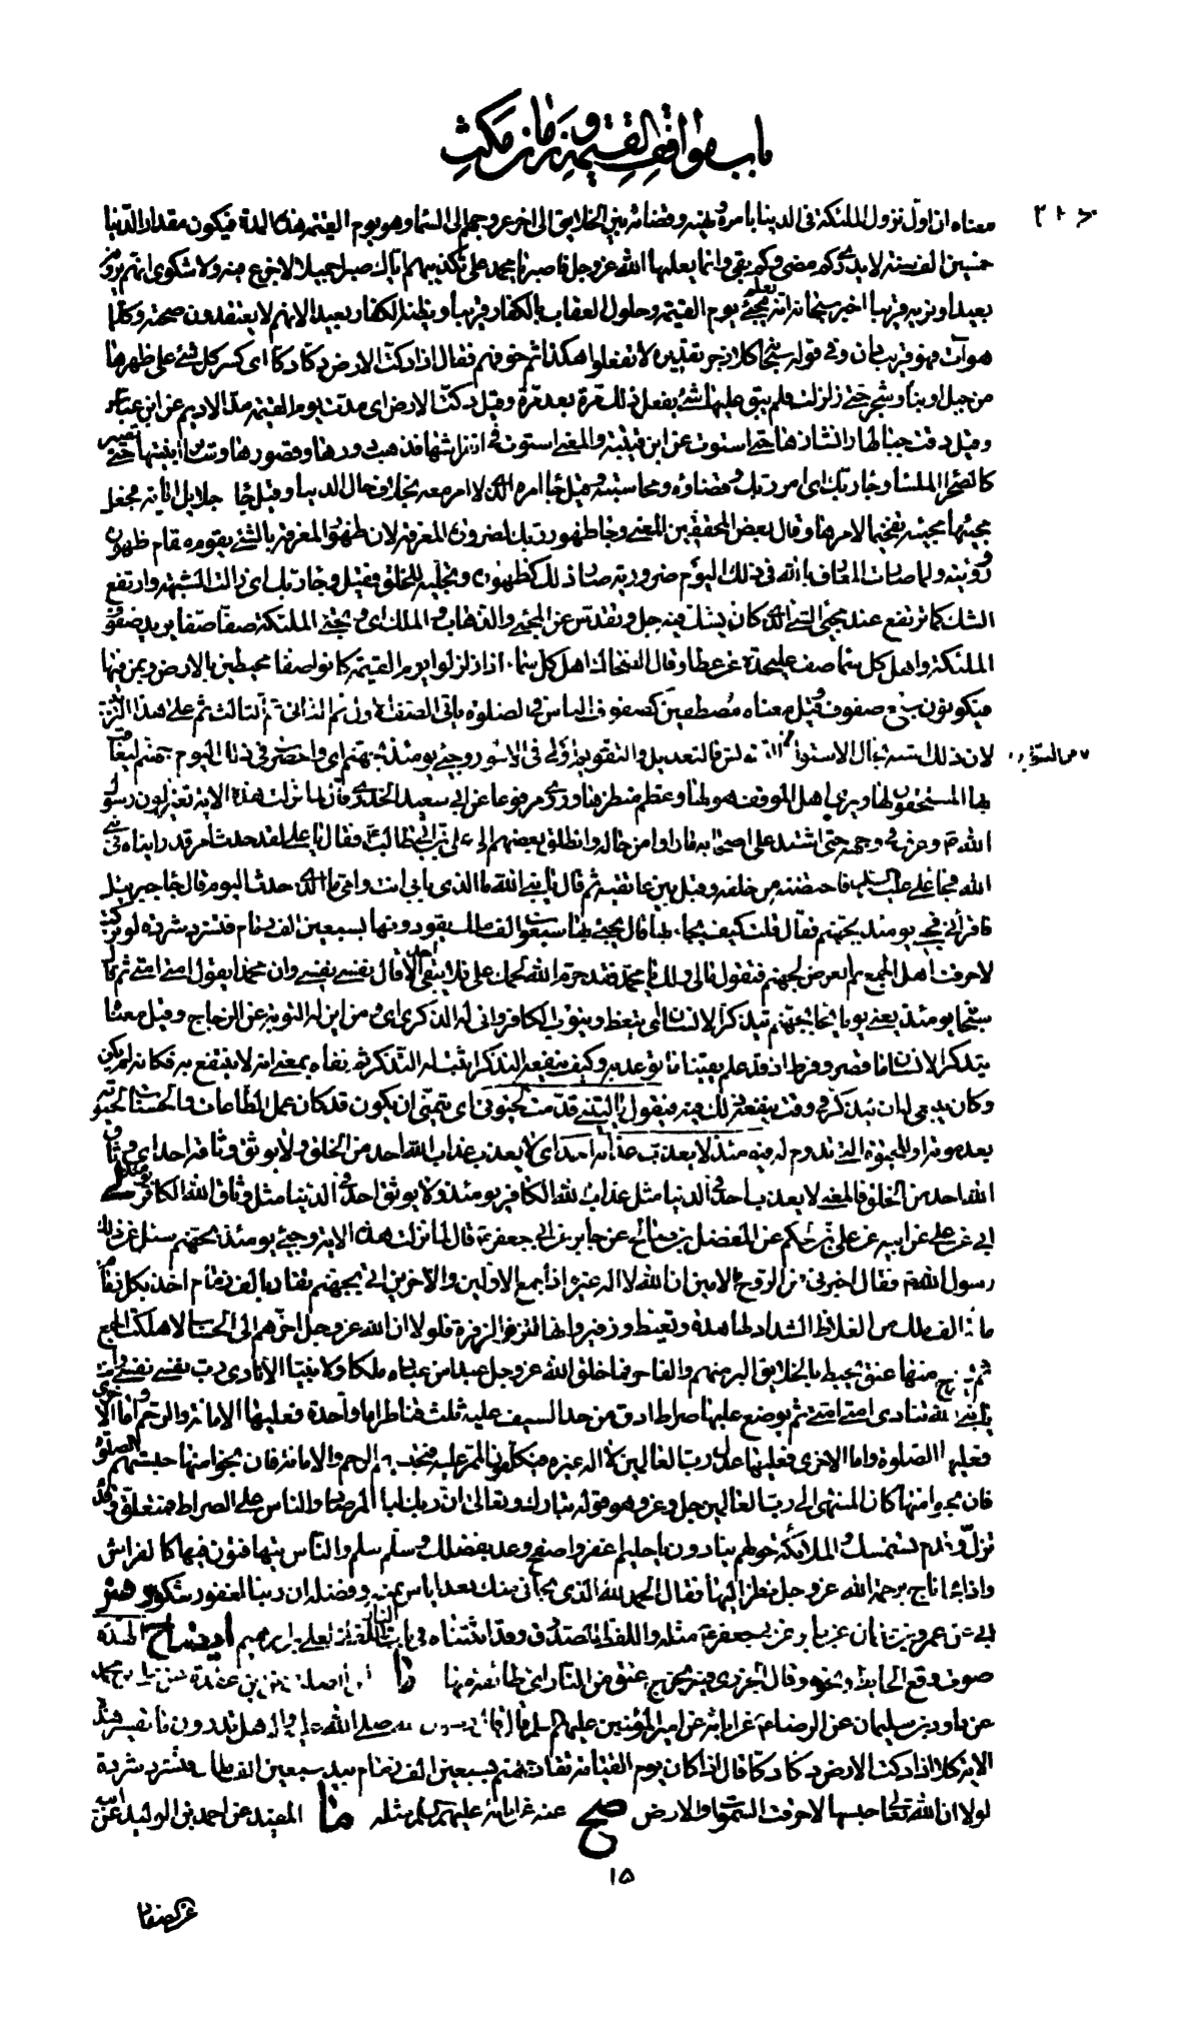 باب مواقف القيمة وزمان مكث
معناه ان اول نزول الملئكة فى الدنيا بامره ونهيه وقضائه بين الخلايق الى اخر عروجهم الى السماء وهو يوم القيمة هذه المدة فيكون مقدار الدنيا
خمسين الف سنة لا يدرى كم مضى وكم بقى وانما يعلمها الله عز وجل فاصبر يا محمد على تكذيبهم اياك صبرا جميلا لا جزع فيه ولا شكوى انهم يرونه
بعيدا ونريه قريبا اخبر سبحانه انه يعلم مجئ يوم القيمة وحلول العقاب بالكفار قريبا ويظنه الكفار بعيدا لانهم لا يعتقدون صحته وكلما
هو آت فهو قريب دان وفى قوله سبحانه كلا زجر تقديره لا تفعلوا هكذا ثم خوفهم فقال اذا دكت الارض دكا دكا اى كسر كل شئ على ظهرها
من جبل او بناء وشجر حتى زلزلت فلم يبق عليها شئ يفعل ذلك مرة بعد مرة وقيل دكت الارض اى مدت يوم القيمة مد الاديم عن ابن عباس
وقيل دقت جبالها وانشازها حتى استوت عن ابن قتيبة والمعنى استوت فى انفراشها فذهب دورها وقصورها وسائر ابنيتها حتى تصير
كالصحراء الملساء وجاء ربك اى امر ربك وقضاؤه ومحاسبته وقيل جاء امره الذى لا امر معه بخلاف حال الدنيا وقيل جاء جلايل اياته فجعل
مجيئها مجيئه تفخيما لامرها وقال بعض المحققين المعنى وجاء ظهور ربك لضرورة المعرفة لان ظهور المعرفة بالشئ يقوم مقام ظهوره
ورؤيته ولما صارت المعارف بالله فى ذلك اليوم ضرورية صار ذلك كظهوره وتجليه للخلق فقيل وجاء ربك اى زالت الشبهة وارتفع
الشك كما ترتفع عند مجئ الشئ الذى كان يشك فيه جل وتقدس عن المجئ والذهاب والملك اى وتجئ الملئكة صفا صفا يريد صفوف
الملئكة واهل كل سماء صف عليحدة عن عطا وقال الضحاك اهل كل سماء اذا زلزلوا يوم القيمة كانوا صفا محيطين بالارض وبمن فيها
فيكونون سبع صفوف وقيل معناه مصطفين كصفوف الناس فى الصلوة ياتى الصف الاول ثم الثانى ثم الثالث ثم على هذا الترتيب
لان ذلك اشبه بحال الاستواء
بها المستحقون لها ويرى اهل الموقف هولها وعظم منظرها وروى مرفوعا عن ابى سعيد الخدرى قال لما نزلت هذه الاية تغير لون رسول
الله ص وعرف فى وجهه حتى اشتد على اصحابه ما راوا من حاله وانطلق بعضهم الى على بن ابى طالب ع فقال يا على لقد حدث امر قد رايناه فى نبى
الله فجاء على عليه السلم فاحتضنه من خلفه وقبل بين عاتقيه ثم قال يا نبى الله بابى انت وامى ما الذى حدث اليوم قال جاء جبرئيل
فاقرأنى وجئ يومئذ بجهنم فقال قلت كيف يجاء بها قال يجئ بها سبعون الف ملك يقودونها بسبعين الف زمام فتشرد شردة لو تركت
لاحرقت اهل الجمع ثم اتعرض لجهنم فتقول مالى ولك يا محمد فقد حرم الله لحمك على فلا يبقى احد الا قال نفسى نفسى وان محمدا يقول امتى امتى ثم قال
سبحانه يومئذ يعنى يوم يجاء بجهنم يتذكر الانسان اى يتعظ ويتوب الكافر وانى له الذكرى اى ومن اين له التوبة عن الزجاج وقيل معناه
يتذكر الانسان ما قصر وفرط اذ قد علم يقينا ما توعد به وكيف ينفعه التذكر اثبت له التذكر ثم نفاه بمعنى انه لا ينتفع به فكانه لم يكن
وكان ينبغى له ان يتذكر فى وقت ينفعه ذلك فيه فيقول يا ليتنى قدمت لحيوتى اى يتمنى ان يكون قد كان عمل الطاعات والحسنات لحيوته
بعد موته او للحيوة التى تدوم له فيومئذ لا يعذب عذابه احد اى لا يعذب عذاب الله احد من الخلق ولا يوثق وثاقه احد اى وثاق
الله احد من الخلق فالمعنى لا يعذب احد فى الدنيا مثل عذاب الله الكافر يومئذ ولا يوثق احد فى الدنيا مثل وثاق الله الكافر يومئذ
ابى عن على عن ابيه عن على بن الحكم عن المفضل بن صالح عن جابر عن ابى جعفر ع قال لما نزلت هذه الاية وجئ يومئذ بجهنم سئل عن ذلك
رسول الله ص فقال اخبرنى الروح الامين ان الله لا اله غيره اذا جمع الاولين والاخرين اتى بجهنم تقاد بالف زمام اخذ بكل زمام
مائة الف ملك من الغلاظ الشداد لها هدة وتغيظ وزفير وانها لتزفر الزفرة فلولا ان الله عز وجل اخرهم الى الحساب لاهلكت الجمع
ثم يخرج منها عنق يحيط بالخلايق البر منهم والفاجر فما خلق الله عز وجل عبدا من عباده ملكا ولا نبيا الا نادى رب نفسى نفسى وانت
يا نبى الله تنادى امتى امتى ثم يوضع عليها صراط ادق من حد السيف عليه ثلث قناطر اما واحدة فعليها الامانة والرحم واما الاخرى
فعليها الصلوة واما الاخرى فعليها عدل رب العالمين لا اله غيره فيكلفون الممر عليه فتحبسهم الرحم والامانة فان نجوا منها حبستهم الصلوة
فان نجوا منها كان المنتهى الى رب العالمين جل وعز وهو قوله تبارك وتعالى ان ربك لبالمرصاد والناس على الصراط فمتعلق وقدم
تزل وقدم تستمسك والملائكة حولهم ينادون يا حليم اغفر واصفح وعد بفضلك وسلم سلم والناس يتهافتون فيها كالفراش
واذا نجا ناج برحمة الله عز وجل نظر اليها فقال الحمد لله الذى نجانى منك بعد اياس بمنه وفضله ان ربنا لغفور شكور
عن جابر عن ابى جعفر ع مثله واللفظ للصدوق وقد اثبتناه فى باب النار ايضاح الهدة
صوت وقع الحايط ونحوه وقال الجزرى فيه يخرج عنق من النار اى طائفة منها ما
عن داود بن سليمان عن الرضا ع عن ابائه عن امير المؤمنين عليهم السلم قال قال رسول الله صلى الله عليه واله هل تدرون ما تفسير هذه
الاية كلا اذا دكت الارض دكا دكا قال اذا كان يوم القيامة تقاد جهنم بسبعين الف زمام بيد سبعين الف ملك فتشرد شردة
لولا ان الله تعالى حبسها لاحرقت السموات والارض صح عنه عن ابائه عليهم السلم مثله ما المفيد عن احمد بن الوليد عن ابيه
١٥
عن الصفار